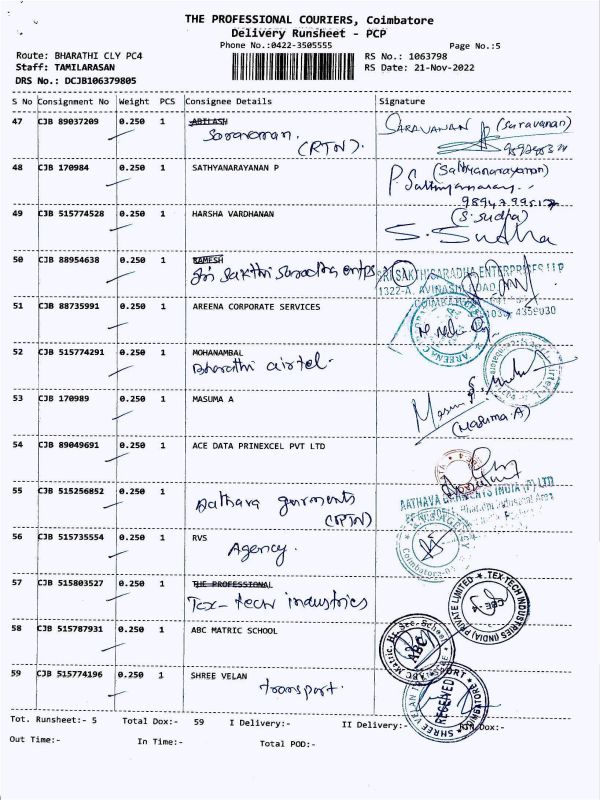 THE PROFESSIONAL COURIERS, Coimbatore
Delivery Runsheet - PCP
Phone No.:0422-3505555
Page No.:5
Route: BHARATHI CLY PC4
RS No.: 1063798
Staff: TAMILARASAN
RS Date: 21-Nov-2022
DRS No.: DCJB106379805
S No Consignment No Weight PCS Consignee Details Signature
47 CJB 89037209 0.250 1 ABILASH SARAVANAN (Saravanan)
Saravanan.
(RTN).
48 CJB 170984 0.250 1 SATHYANARAYANAN P (Sathyanarayanan)
P. Sathiyanarayanan
49 CJB 515774528 0.250 1 HARSHA VARDHANAN (S. Sudha)
S. Sudha
50 CJB 88954638 0.250 1 RAMESH
Sri Sakthi Saradha entps SRI SAKTHI SARADHA ENTERPRISES LLP
1322-A, AVINASHI ROAD
COIMBATORE
4359030
51 CJB 88735991 0.250 1 AREENA CORPORATE SERVICES
52 CJB 515774291 0.250 1 MOHANAMBAL
Bharathi airtel.
53 CJB 170989 0.250 1 MASUMA A
(Masuma.A)
54 CJB 89049691 0.250 1 ACE DATA PRINEXCEL PVT LTD
55 CJB 515256852 0.250 1
Aathava garments
(RTN)
AATHAVA GARMENTS INDIA (P) LTD
56 CJB 515735554 0.250 1 RVS
Agency.
57 CJB 515803527 0.250 1 THE PROFESSIONAL
Tex-tech industries
TEX-TECH INDUSTRIES (INDIA) PRIVATE LIMITED
CBE-4
58 CJB 515787931 0.250 1 ABC MATRIC SCHOOL
ABC Matric. Hr. Sec. School
59 CJB 515774196 0.250 1 SHREE VELAN
transport.
SHREE VELAN TRANSPORT
RECEIVED
Tot. Runsheet:- 5 Total Dox:- 59 I Delivery:- II Delivery:- Non Dox:-
Out Time:- In Time:- Total POD:-